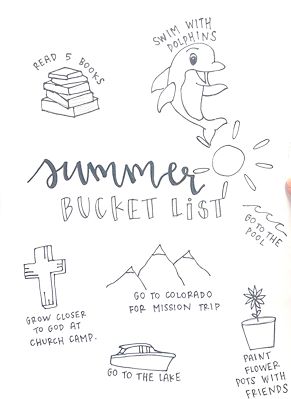 READ 5 BOOKS
SWIM WITH
DOLPHINS
summer
BUCKET LIST
GO TO THE
POOL
GROW CLOSER
TO GOD AT
CHURCH CAMP.
GO TO COLORADO
FOR MISSION TRIP
GO TO THE LAKE
PAINT
FLOWER
POTS WITH
FRIENDS